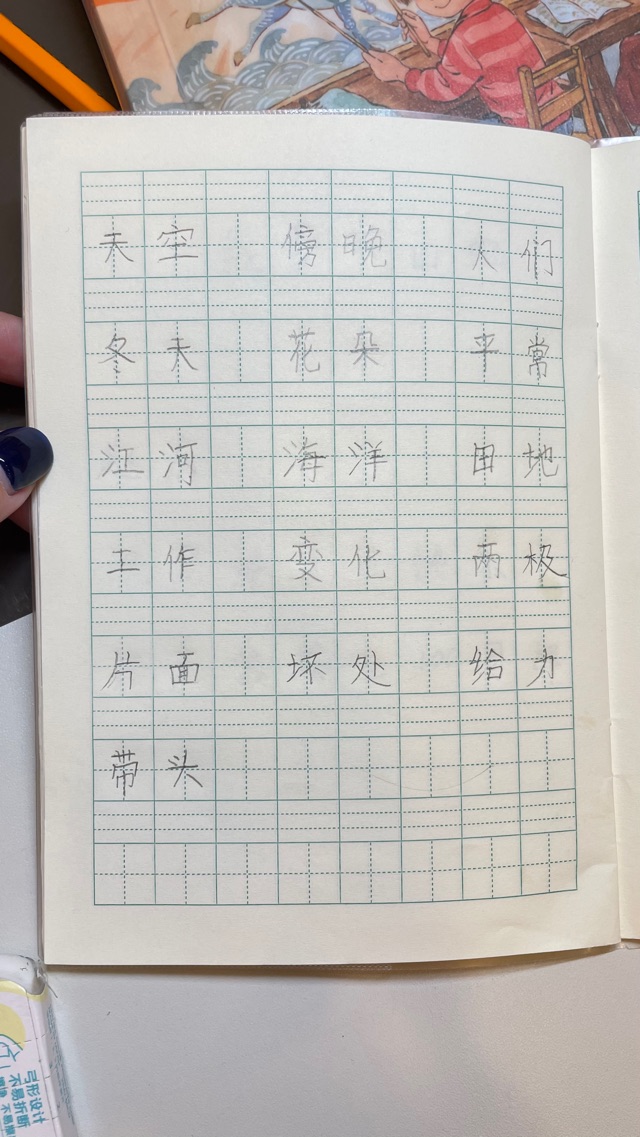 天空 傍晚 人们
冬天 花朵 平常
江河 海洋 田地
工作 变化 两极
片面 坏处 给力
带头
弓形设计
不易折断